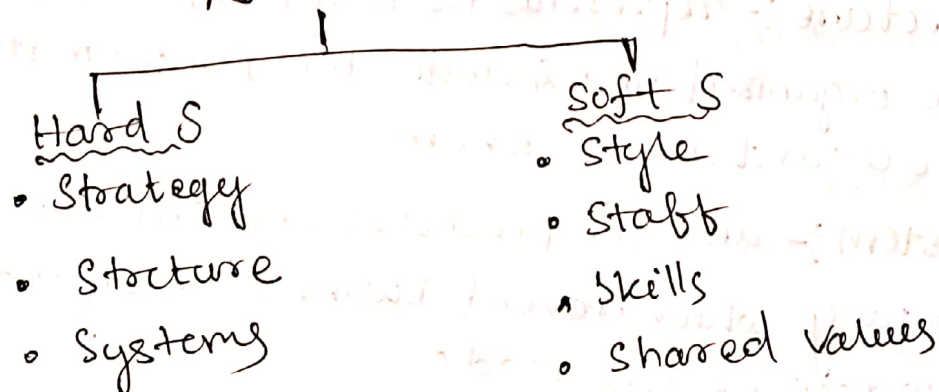 Hard S
• Strategy
• Stocture
• Systems
Soft S
• Style
• Staff
• Skills
• Shared values